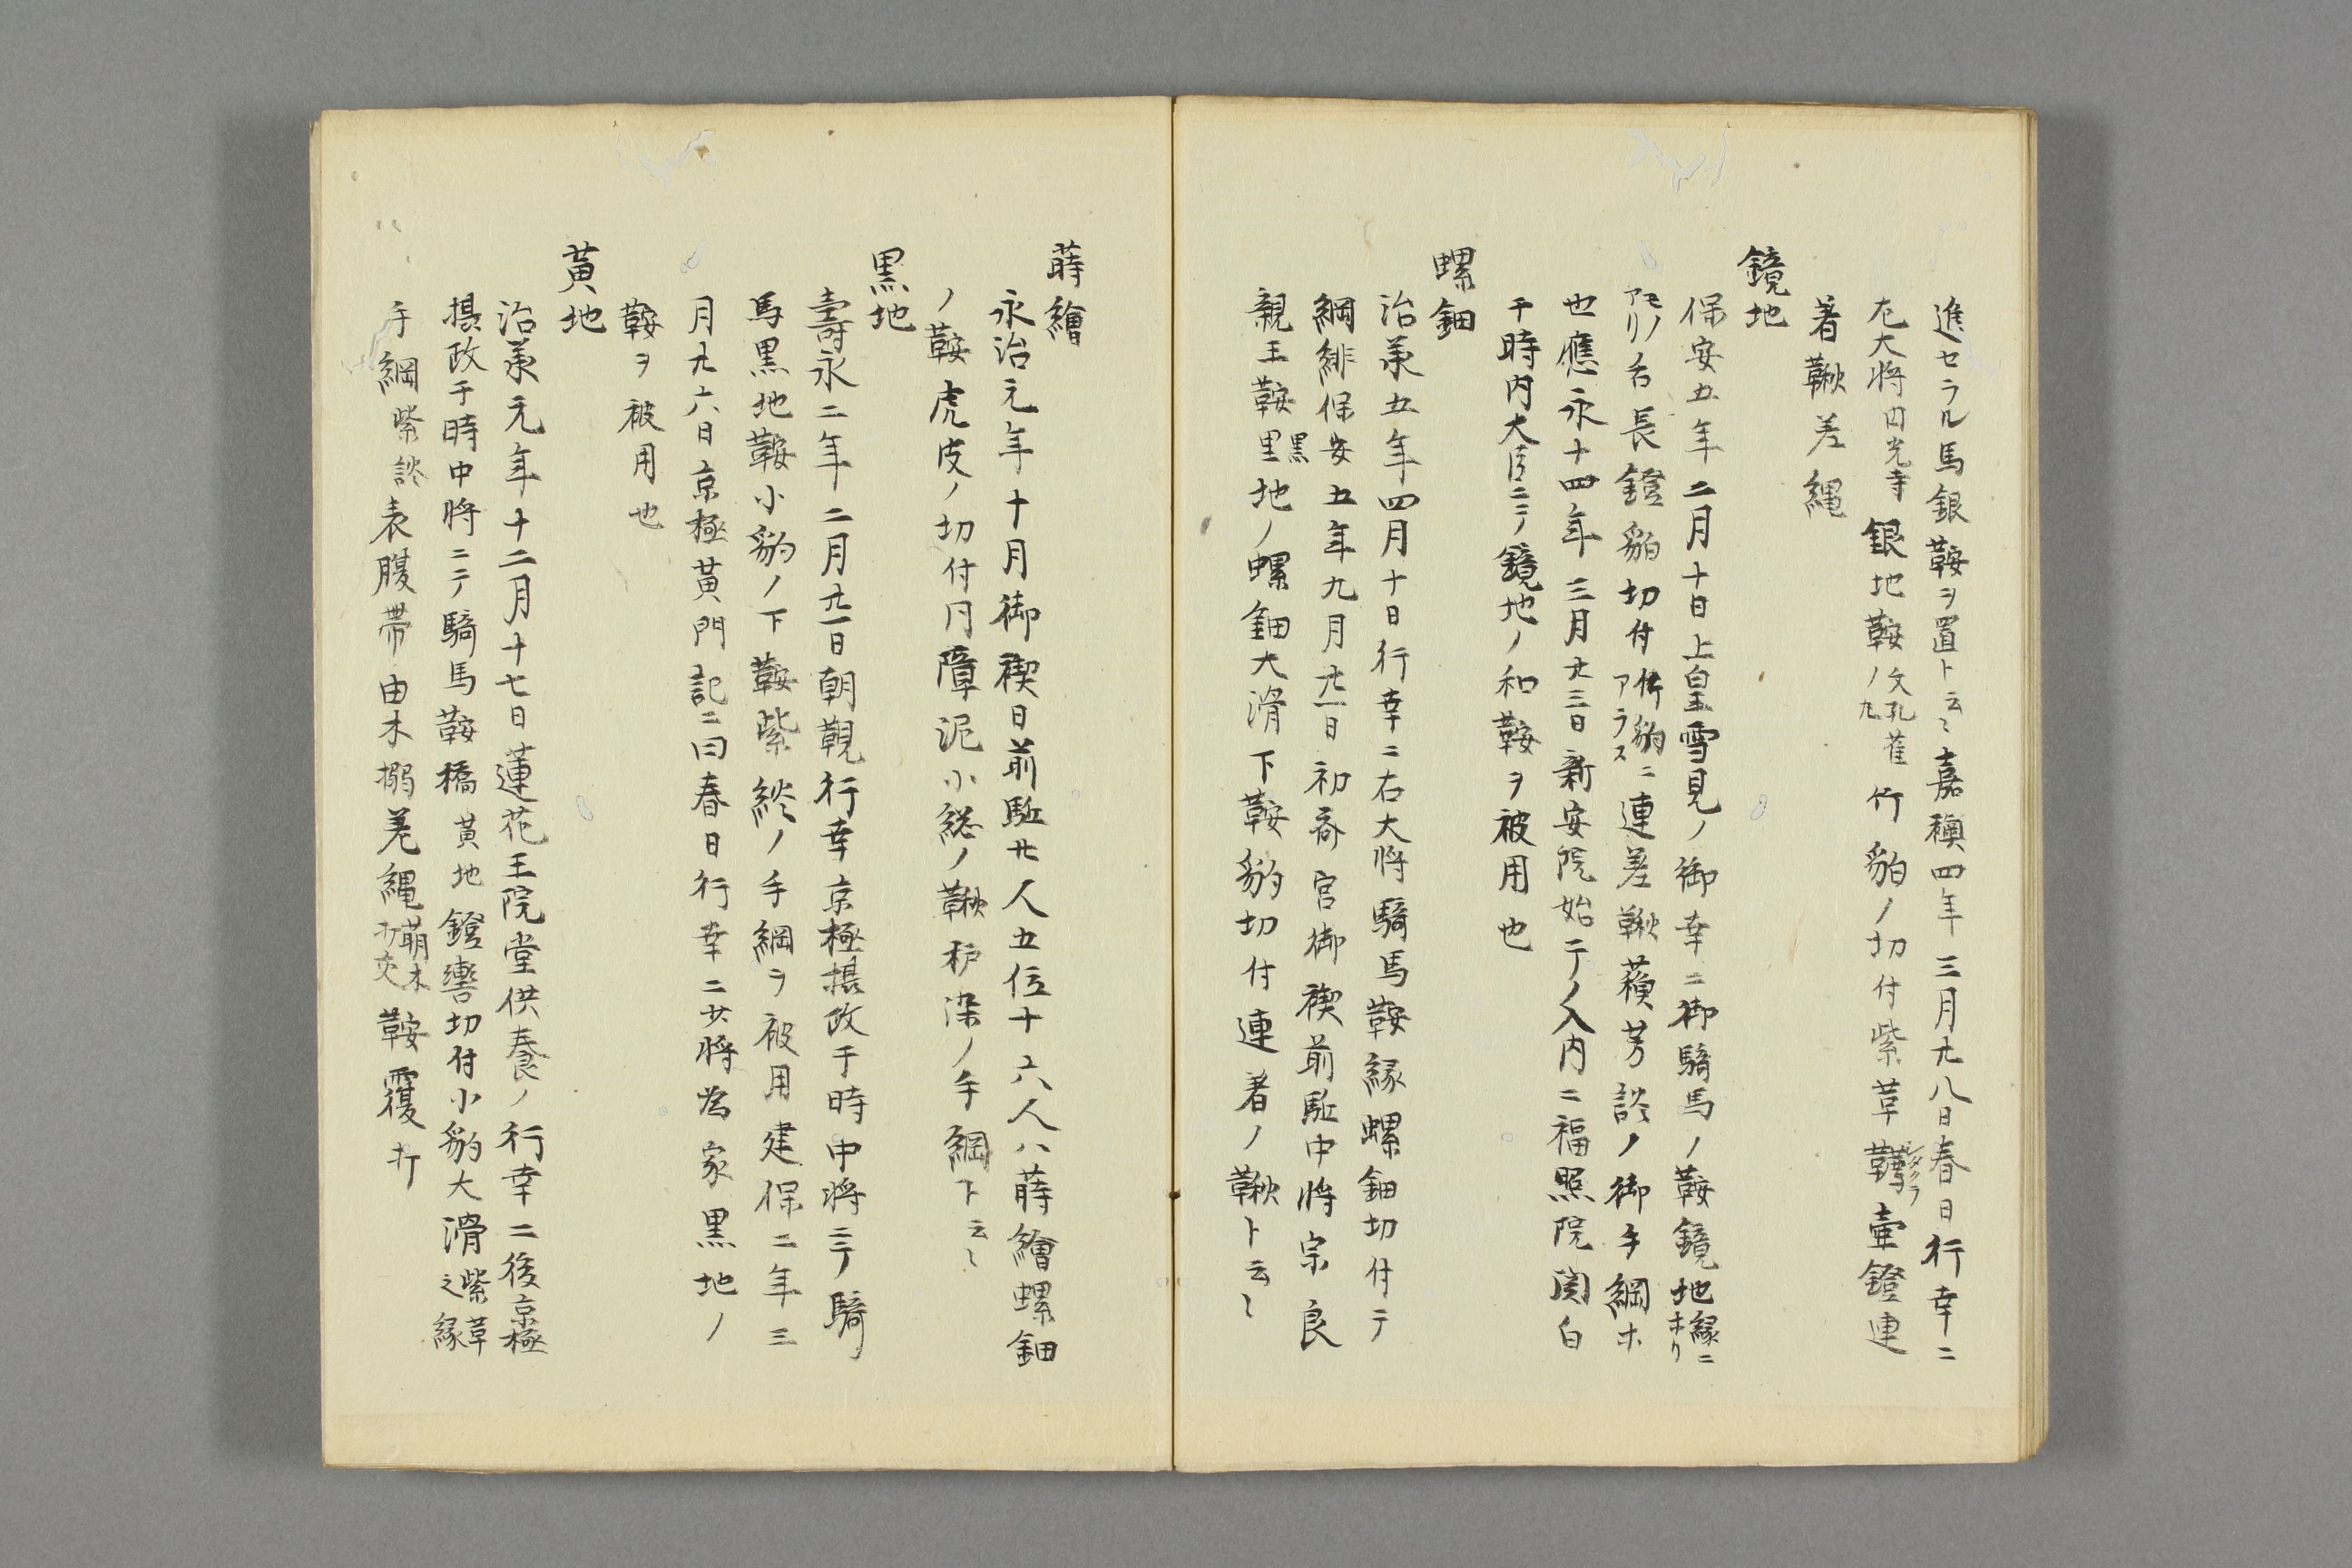 進セラル馬銀鞍ヲ置ト云〻嘉禎四年三月廿八日春日行幸ニ
左大将円光寺銀地鞍ノ文孔雀丸竹豹ノ切付紫草韉壷鐙連
著鞦差縄
鏡地
保安五年二月十日上皇雪見ノ御幸ニ御騎馬ノ鞍鏡地縁ニホリ
モノアリ舌長鐙豹切付竹豹ニアラス連差鞦蘓芳談ノ御手綱ホ
也應永十四年三月廿三日新安院始テノ入内ニ福照院関白
于時内大臣ニテノ鏡地ノ和鞍ヲ被用也
螺鈿
治承五年四月十日行幸ニ右大将騎馬鞍縁螺鈿切付テ
綱緋保安五年九月廿一日初斎宮御禊前駈中将宗良
親王鞍黒里地ノ螺鈿大滑下鞍豹切付連着ノ鞦ト云〻
蒔繪
永治元年十月御禊日前駈廿人五位十六人ハ蒔繪螺鈿
ノ鞍虎皮ノ切付円障泥小総ノ鞦栌染ノ手綱ト云〻
黒地
壽永二年二月廿一日朝覲行幸京極摂政于時中将ニテノ騎
馬黒地鞍小豹ノ下鞍紫緂ノ手綱ヲ被用建保二年三
月廿六日京極黄門記ニ曰春日行幸ニ少将為家黒地ノ
鞍ヲ被用也
黄地
治承元年十二月十七日蓮花王院堂供養ノ行幸ニ後京極
摂政于時中将ニテノ騎馬鞍橋黄地鐙轡切付小豹大滑紫草之縁
手綱紫談表腹帯由木搦差縄萌木打交鞍覆打